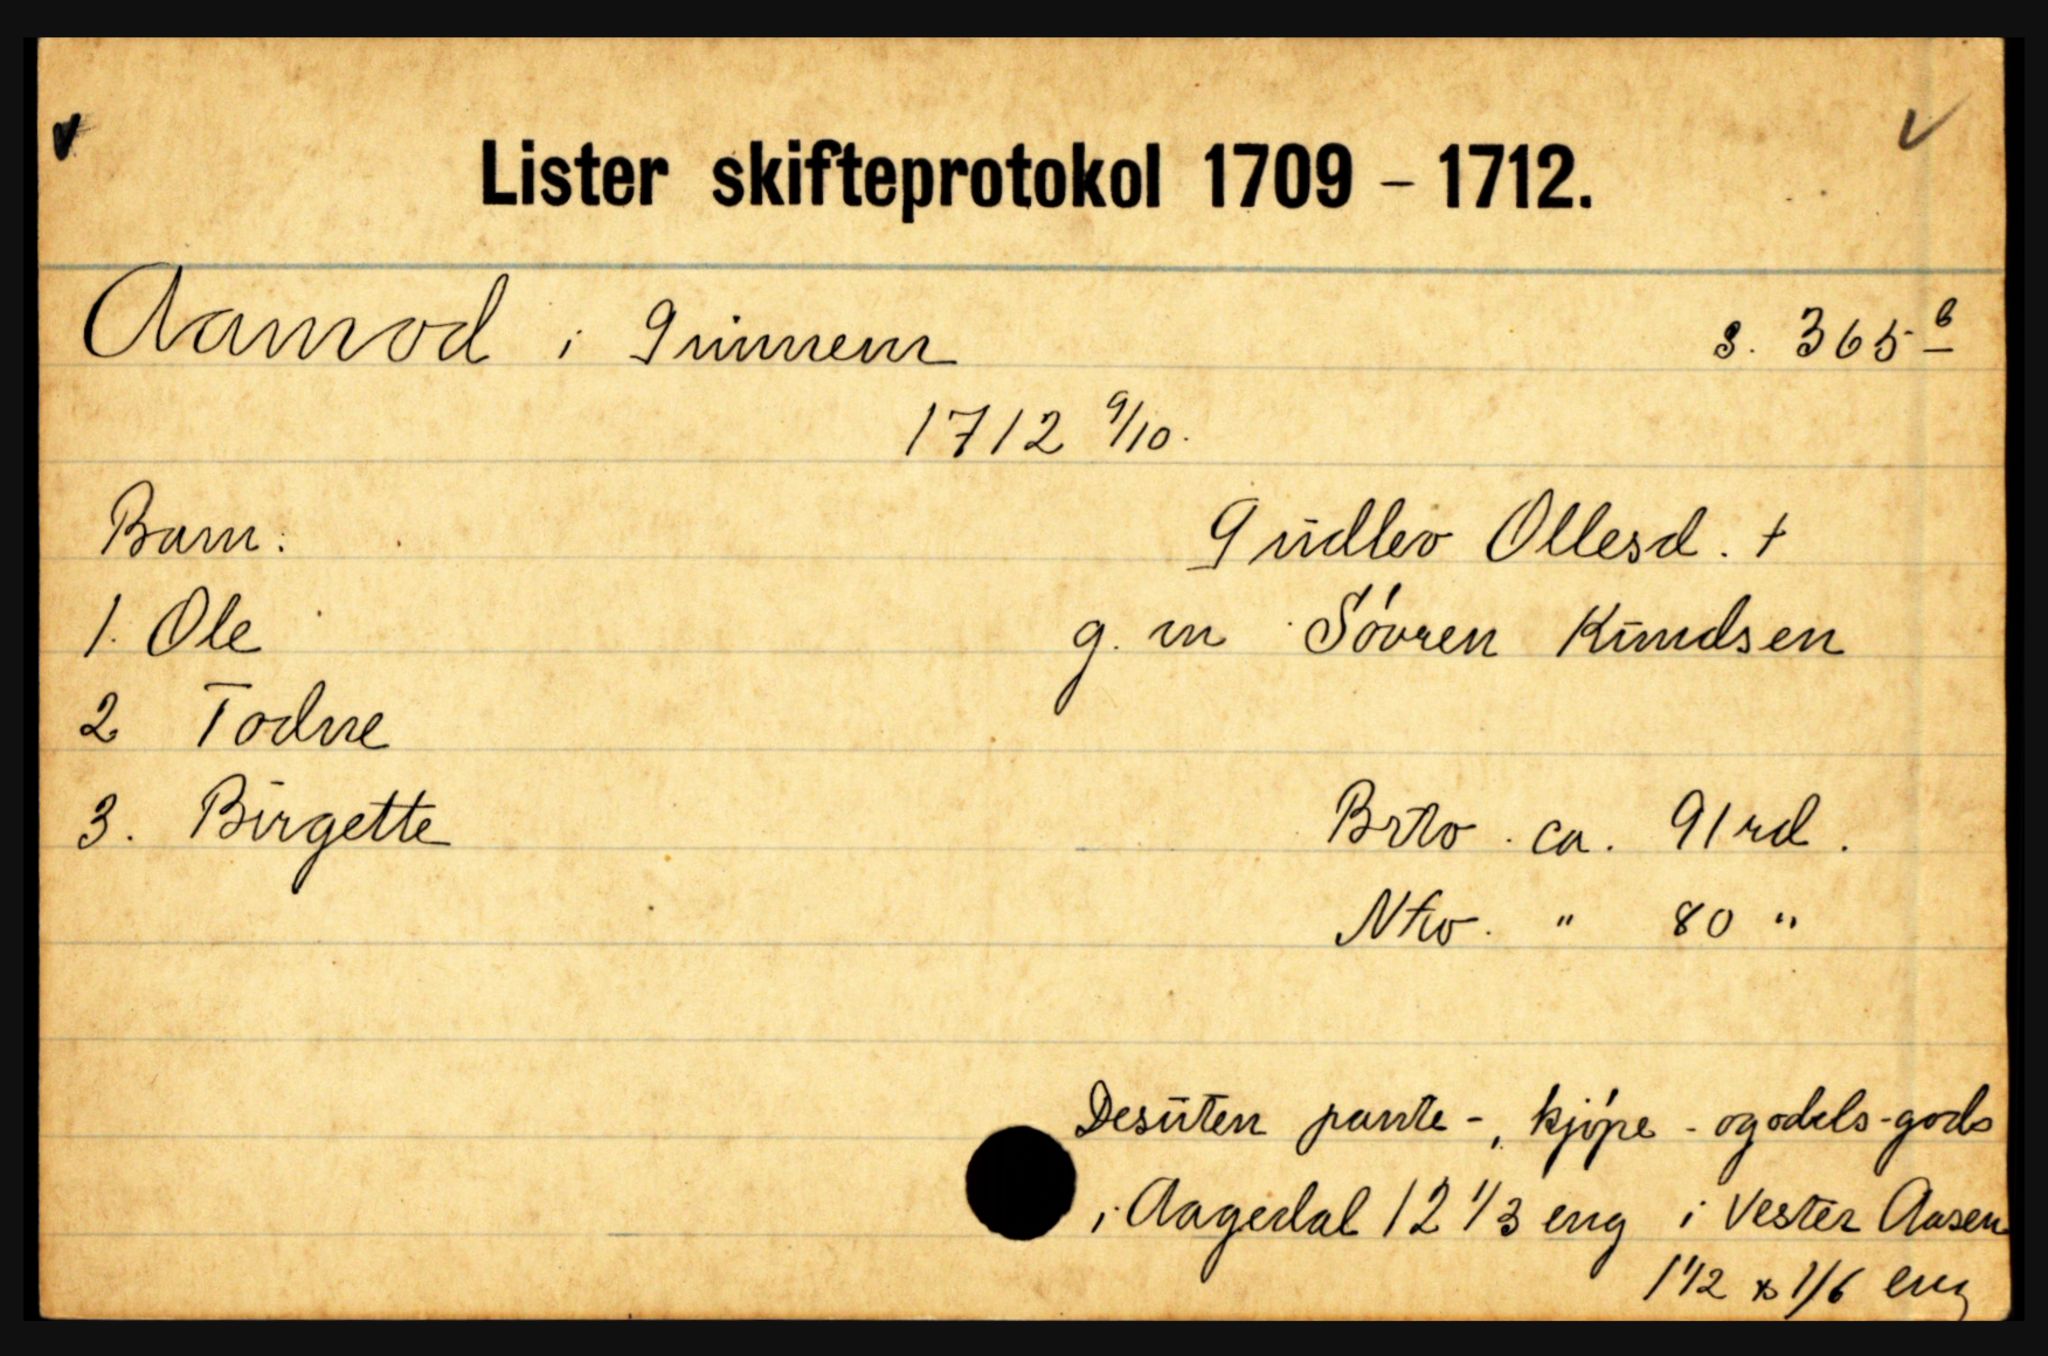 Lister skifteprotokol 1709 - 1712.
Aamod i Grimnem s. 365 b
1712 9/10.
Barn: Gudlev Ollesd. †
1. Ole g. m Sövren Knudsen
2 Todne
3. Birgette Brto. ca. 91 rd.
Nto. " 80 "
Desuten pante-, kjøpe- og odels-gods
i Aagedal 12 1/3 eng i Vester Aasen
1 1/2 1/6 eng